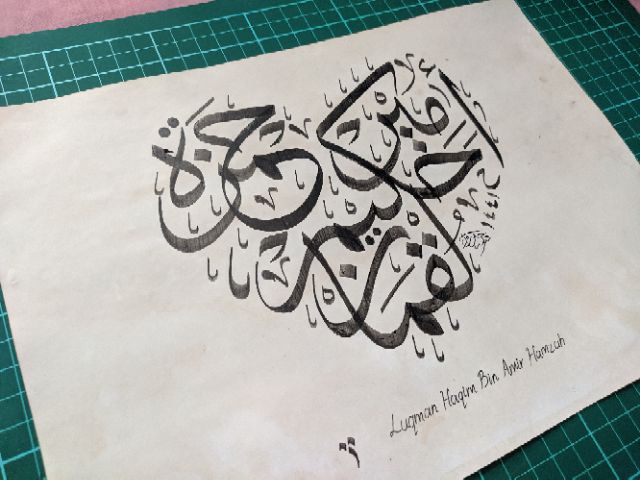 لقمان
حكيم
أمير
حمزة
١٤٤١
Luqman Haqim Bin Amir Hamzah